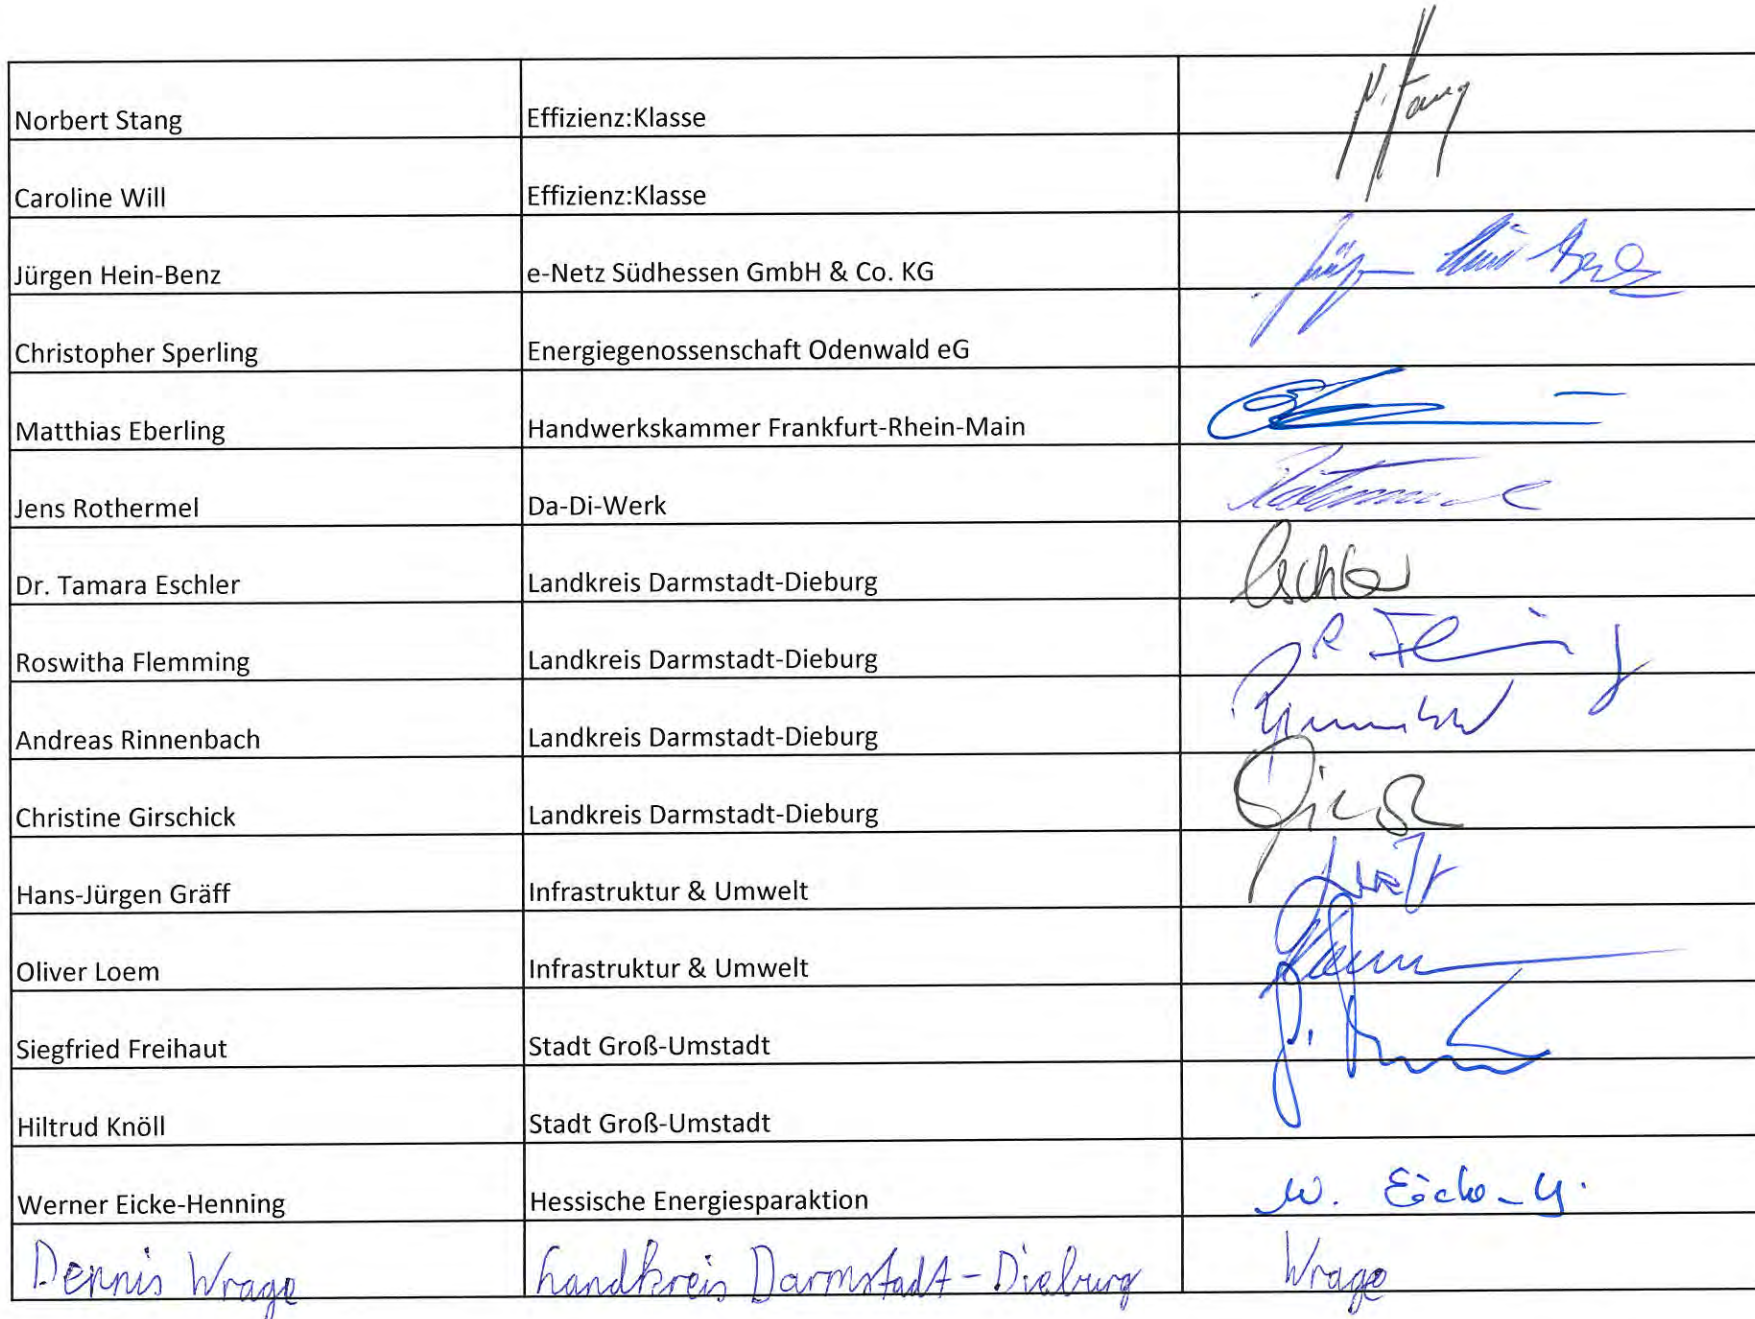 Norbert Stang Effizienz:Klasse N. Stang
Caroline Will Effizienz:Klasse
Jürgen Hein-Benz e-Netz Südhessen GmbH & Co. KG Jürgen Hein-Benz
Christopher Sperling Energiegenossenschaft Odenwald eG
Matthias Eberling Handwerkskammer Frankfurt-Rhein-Main
Jens Rothermel Da-Di-Werk Rothermel
Dr. Tamara Eschler Landkreis Darmstadt-Dieburg Eschler
Roswitha Flemming Landkreis Darmstadt-Dieburg R. Flemming
Andreas Rinnenbach Landkreis Darmstadt-Dieburg
Christine Girschick Landkreis Darmstadt-Dieburg
Hans-Jürgen Gräff Infrastruktur & Umwelt
Oliver Loem Infrastruktur & Umwelt
Siegfried Freihaut Stadt Groß-Umstadt
Hiltrud Knöll Stadt Groß-Umstadt
Werner Eicke-Henning Hessische Energiesparaktion W. Eicke-H.
Dennis Wrage Landkreis Darmstadt-Dieburg Wrage